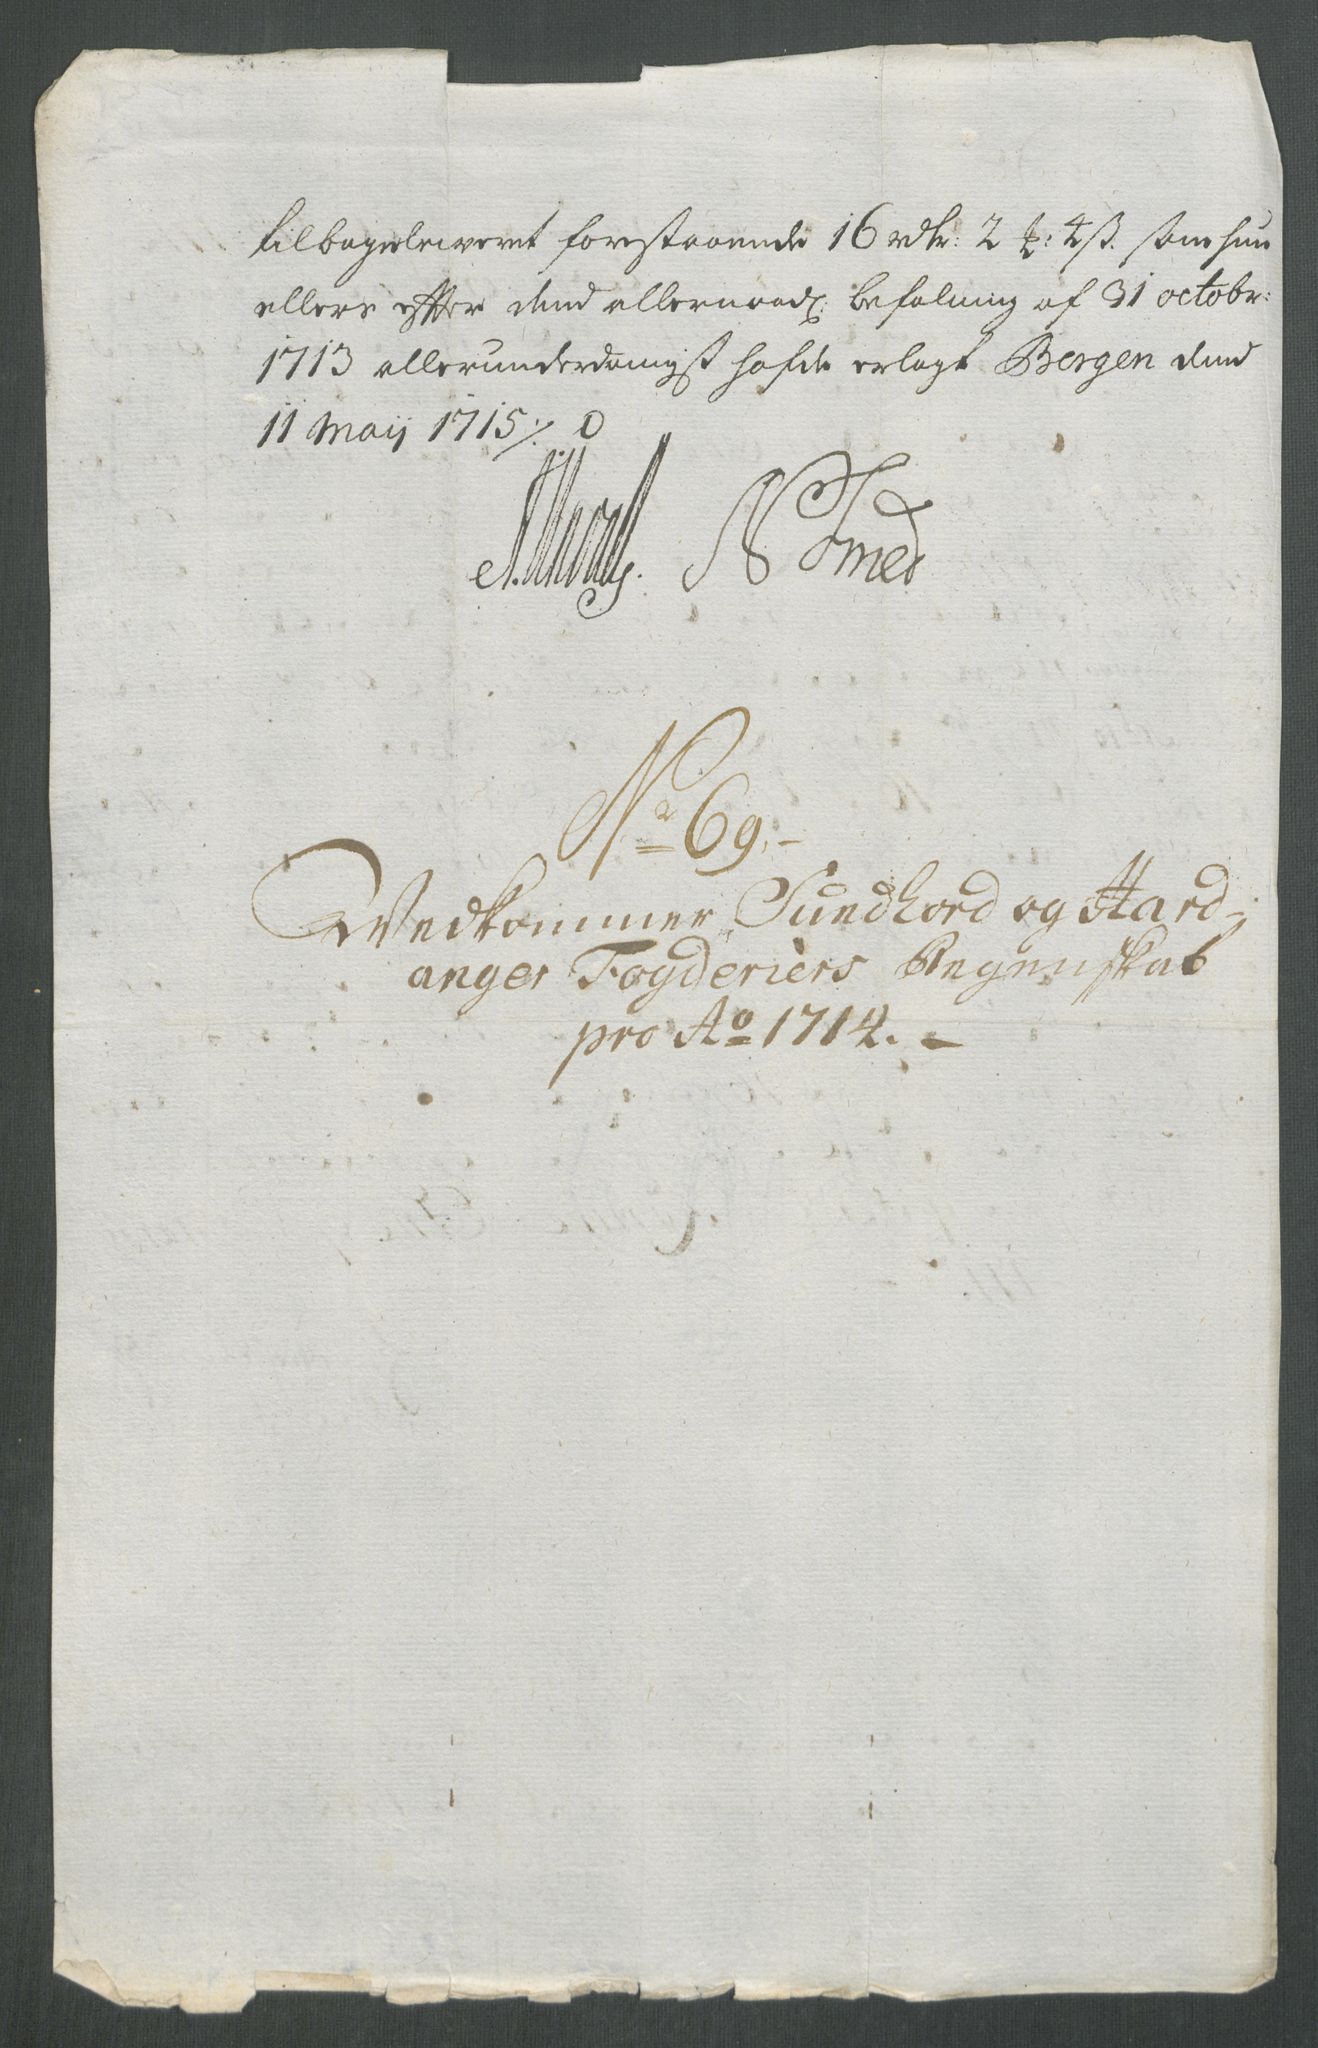 tilbageleiveret forestaaende 16 rdr: 2 ℔: 4 ß. som hun
ellers effter dend allernaad: befalning af 31 octobr:
1713 allerunderdanigst hafde erlagt Bergen dend
11 Maij 1715 ⁒
N Tmed
No 69.-
Wedkommer Sundhord og Hard-
anger Fogderiers Regenskab
pro Ao 1714. -